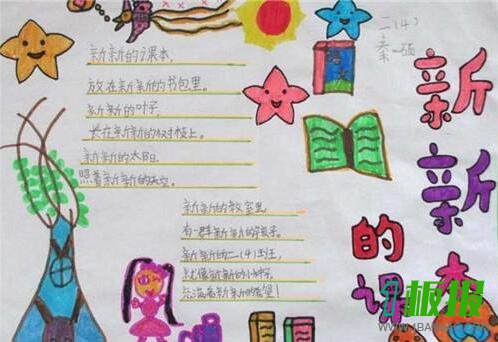 二(4)
新新的课本
新新的课本,
放在新新的书包里。
新新的叶子,
长在新新的树枝上。
新新的太阳,
照着新新的天空。
新新的教室里,
有一群新新的孩子。
新新的二(4)班,
就像新新的小
充满着新新的希望!
板报